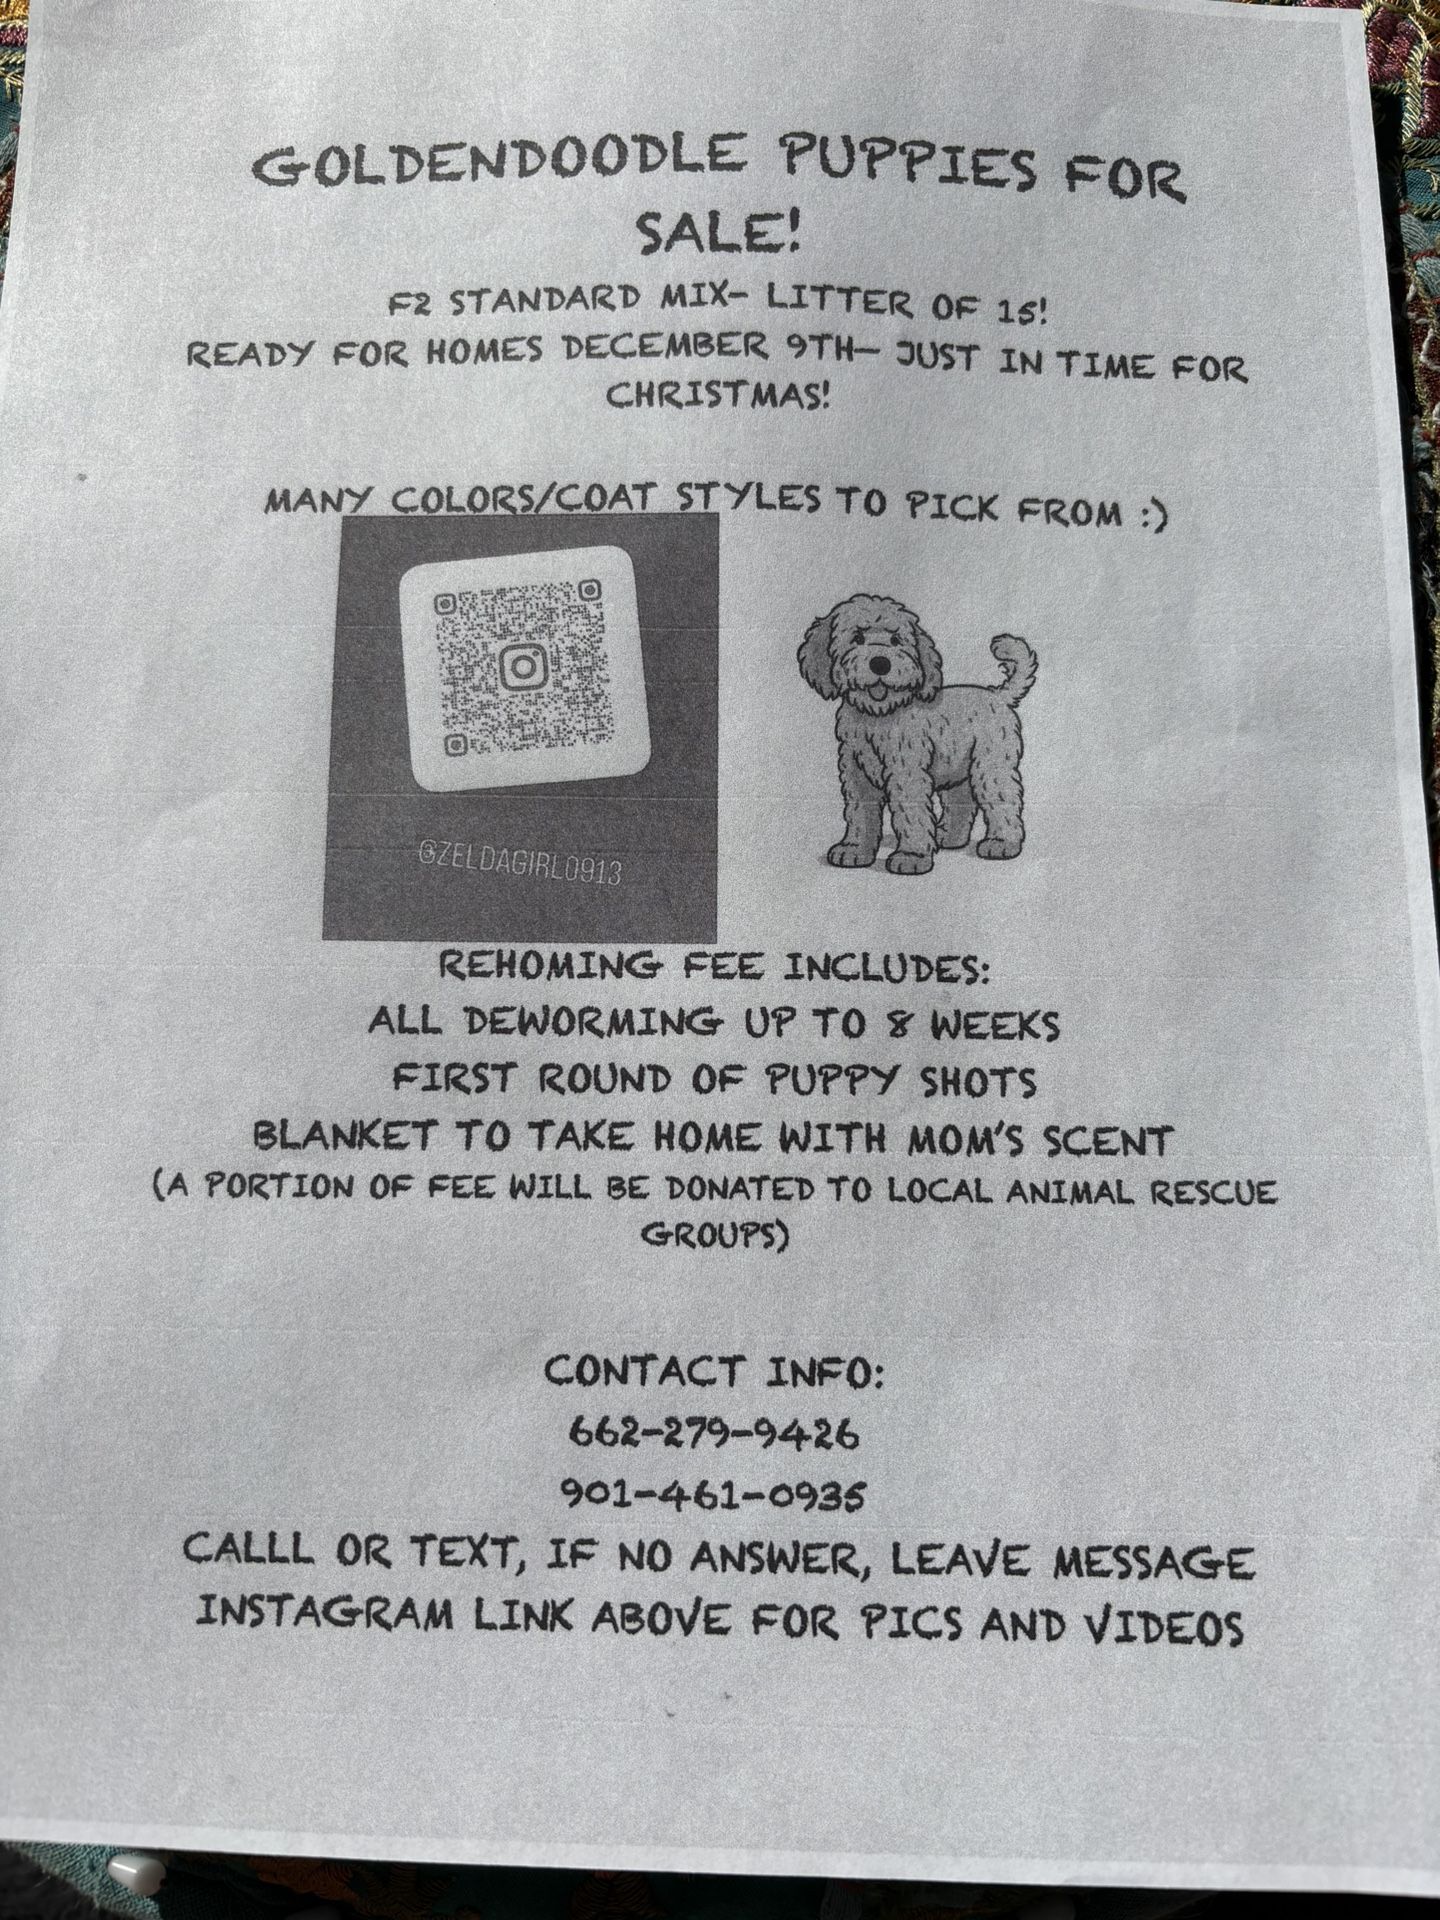 GOLDENDOODLE PUPPIES FOR
SALE!
F2 STANDARD MIX- LITTER OF 15!
READY FOR HOMES DECEMBER 9TH- JUST IN TIME FOR
CHRISTMAS!
MANY COLORS/COAT STYLES TO PICK FROM :)
@ZELDAGIRL0913
REHOMING FEE INCLUDES:
ALL DEWORMING UP TO 8 WEEKS
FIRST ROUND OF PUPPY SHOTS
BLANKET TO TAKE HOME WITH MOM'S SCENT
(A PORTION OF FEE WILL BE DONATED TO LOCAL ANIMAL RESCUE
GROUPS)
CONTACT INFO:
662-279-9426
901-461-0935
CALLL OR TEXT, IF NO ANSWER, LEAVE MESSAGE
INSTAGRAM LINK ABOVE FOR PICS AND VIDEOS